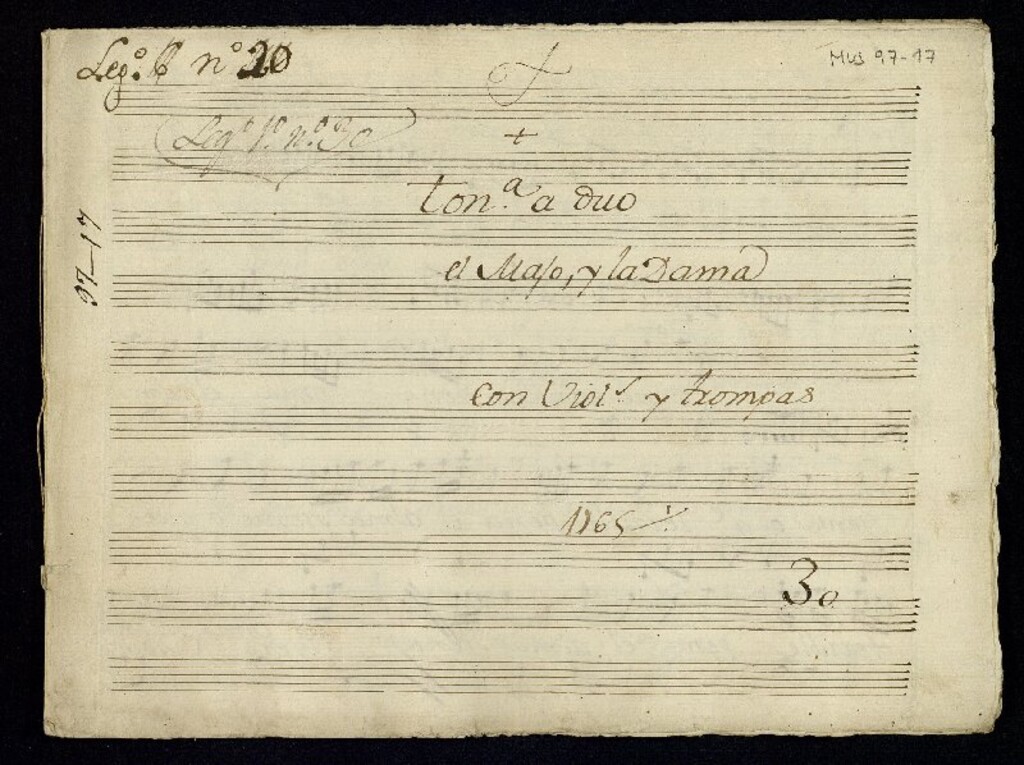 Leg.º 6 nº 20
Mus 97-17
Leg.º 1º n.º 30
97-17
ton.ª a duo
el Majo, y la Dama
Con Viol.s y trompas
1765
30